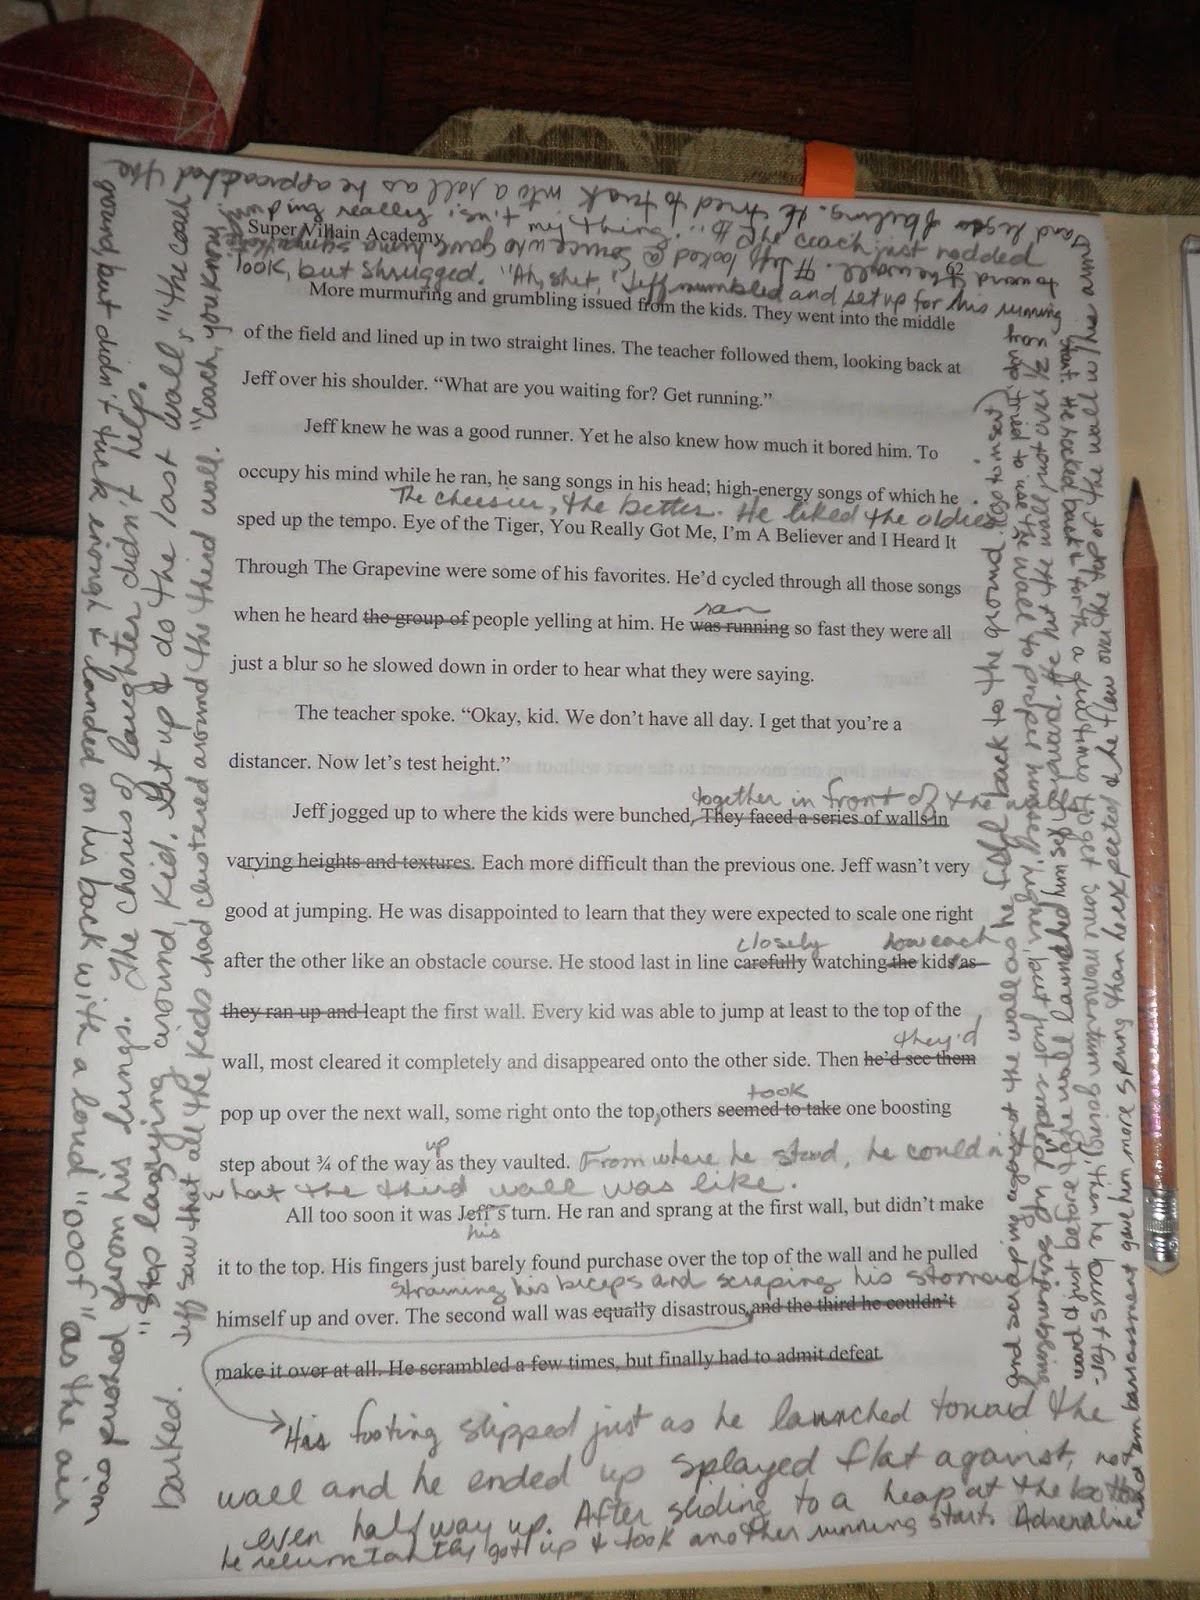 Super Villain Academy
62
More murmuring and grumbling issued from the kids. They went into the middle
of the field and lined up in two straight lines. The teacher followed them, looking back at
Jeff over his shoulder. “What are you waiting for? Get running.”
Jeff knew he was a good runner. Yet he also knew how much it bored him. To
occupy his mind while he ran, he sang songs in his head; high-energy songs of which he
The cheesier, the better. He liked the oldies.
sped up the tempo. Eye of the Tiger, You Really Got Me, I’m A Believer and I Heard It
Through The Grapevine were some of his favorites. He’d cycled through all those songs
ran
when he heard the group of people yelling at him. He was running so fast they were all
just a blur so he slowed down in order to hear what they were saying.
The teacher spoke. “Okay, kid. We don’t have all day. I get that you’re a
distancer. Now let’s test height.”
together in front of the walls
Jeff jogged up to where the kids were bunched, They faced a series of walls in
varying heights and textures. Each more difficult than the previous one. Jeff wasn’t very
good at jumping. He was disappointed to learn that they were expected to scale one right
closely how each
after the other like an obstacle course. He stood last in line carefully watching the kids as
they ran up and leapt the first wall. Every kid was able to jump at least to the top of the
they'd
wall, most cleared it completely and disappeared onto the other side. Then he’d see them
took
pop up over the next wall, some right onto the top, others seemed to take one boosting
up
step about ¾ of the way as they vaulted. From where he stood, he couldn't
what the third wall was like.
All too soon it was Jeff’s turn. He ran and sprang at the first wall, but didn’t make
his
it to the top. His fingers just barely found purchase over the top of the wall and he pulled
straining his biceps and scraping his stomach
himself up and over. The second wall was equally disastrous, and the third he couldn’t
make it over at all. He scrambled a few times, but finally had to admit defeat
His footing slipped just as he launched toward the
wall and he ended up splayed flat against, not
even halfway up. After sliding to a heap at the bottom
he reluctantly got up & took another running start. Adrenaline
and embarrassment gave him more spring than he expected & he flew over the top of the wall
start. He rocked back & forth a few times to get some momentum going, then he burst for-
ward & just before the wall launched
way up, tried to use the wall to propel himself higher but just
and scraping against the wall as he fell back to the ground.
and began
He tried to tuck into a ball as he approached the
ground, but didn't tuck enough & landed on his back with a loud "ooof" as the air
was pushed from his lungs. The chorus of laughter didn't help.
"Stop lazying around, kid. Get up & do the last wall," the coach
barked. Jeff saw that all the kids had clustered around the third wall. "Coach, you know,
jumping really isn't my thing..."
The coach just nodded
toward the wall. Jeff looked @ Source who gave him a
look, but shrugged. "Ah, shit," Jeff mumbled and set up for his running